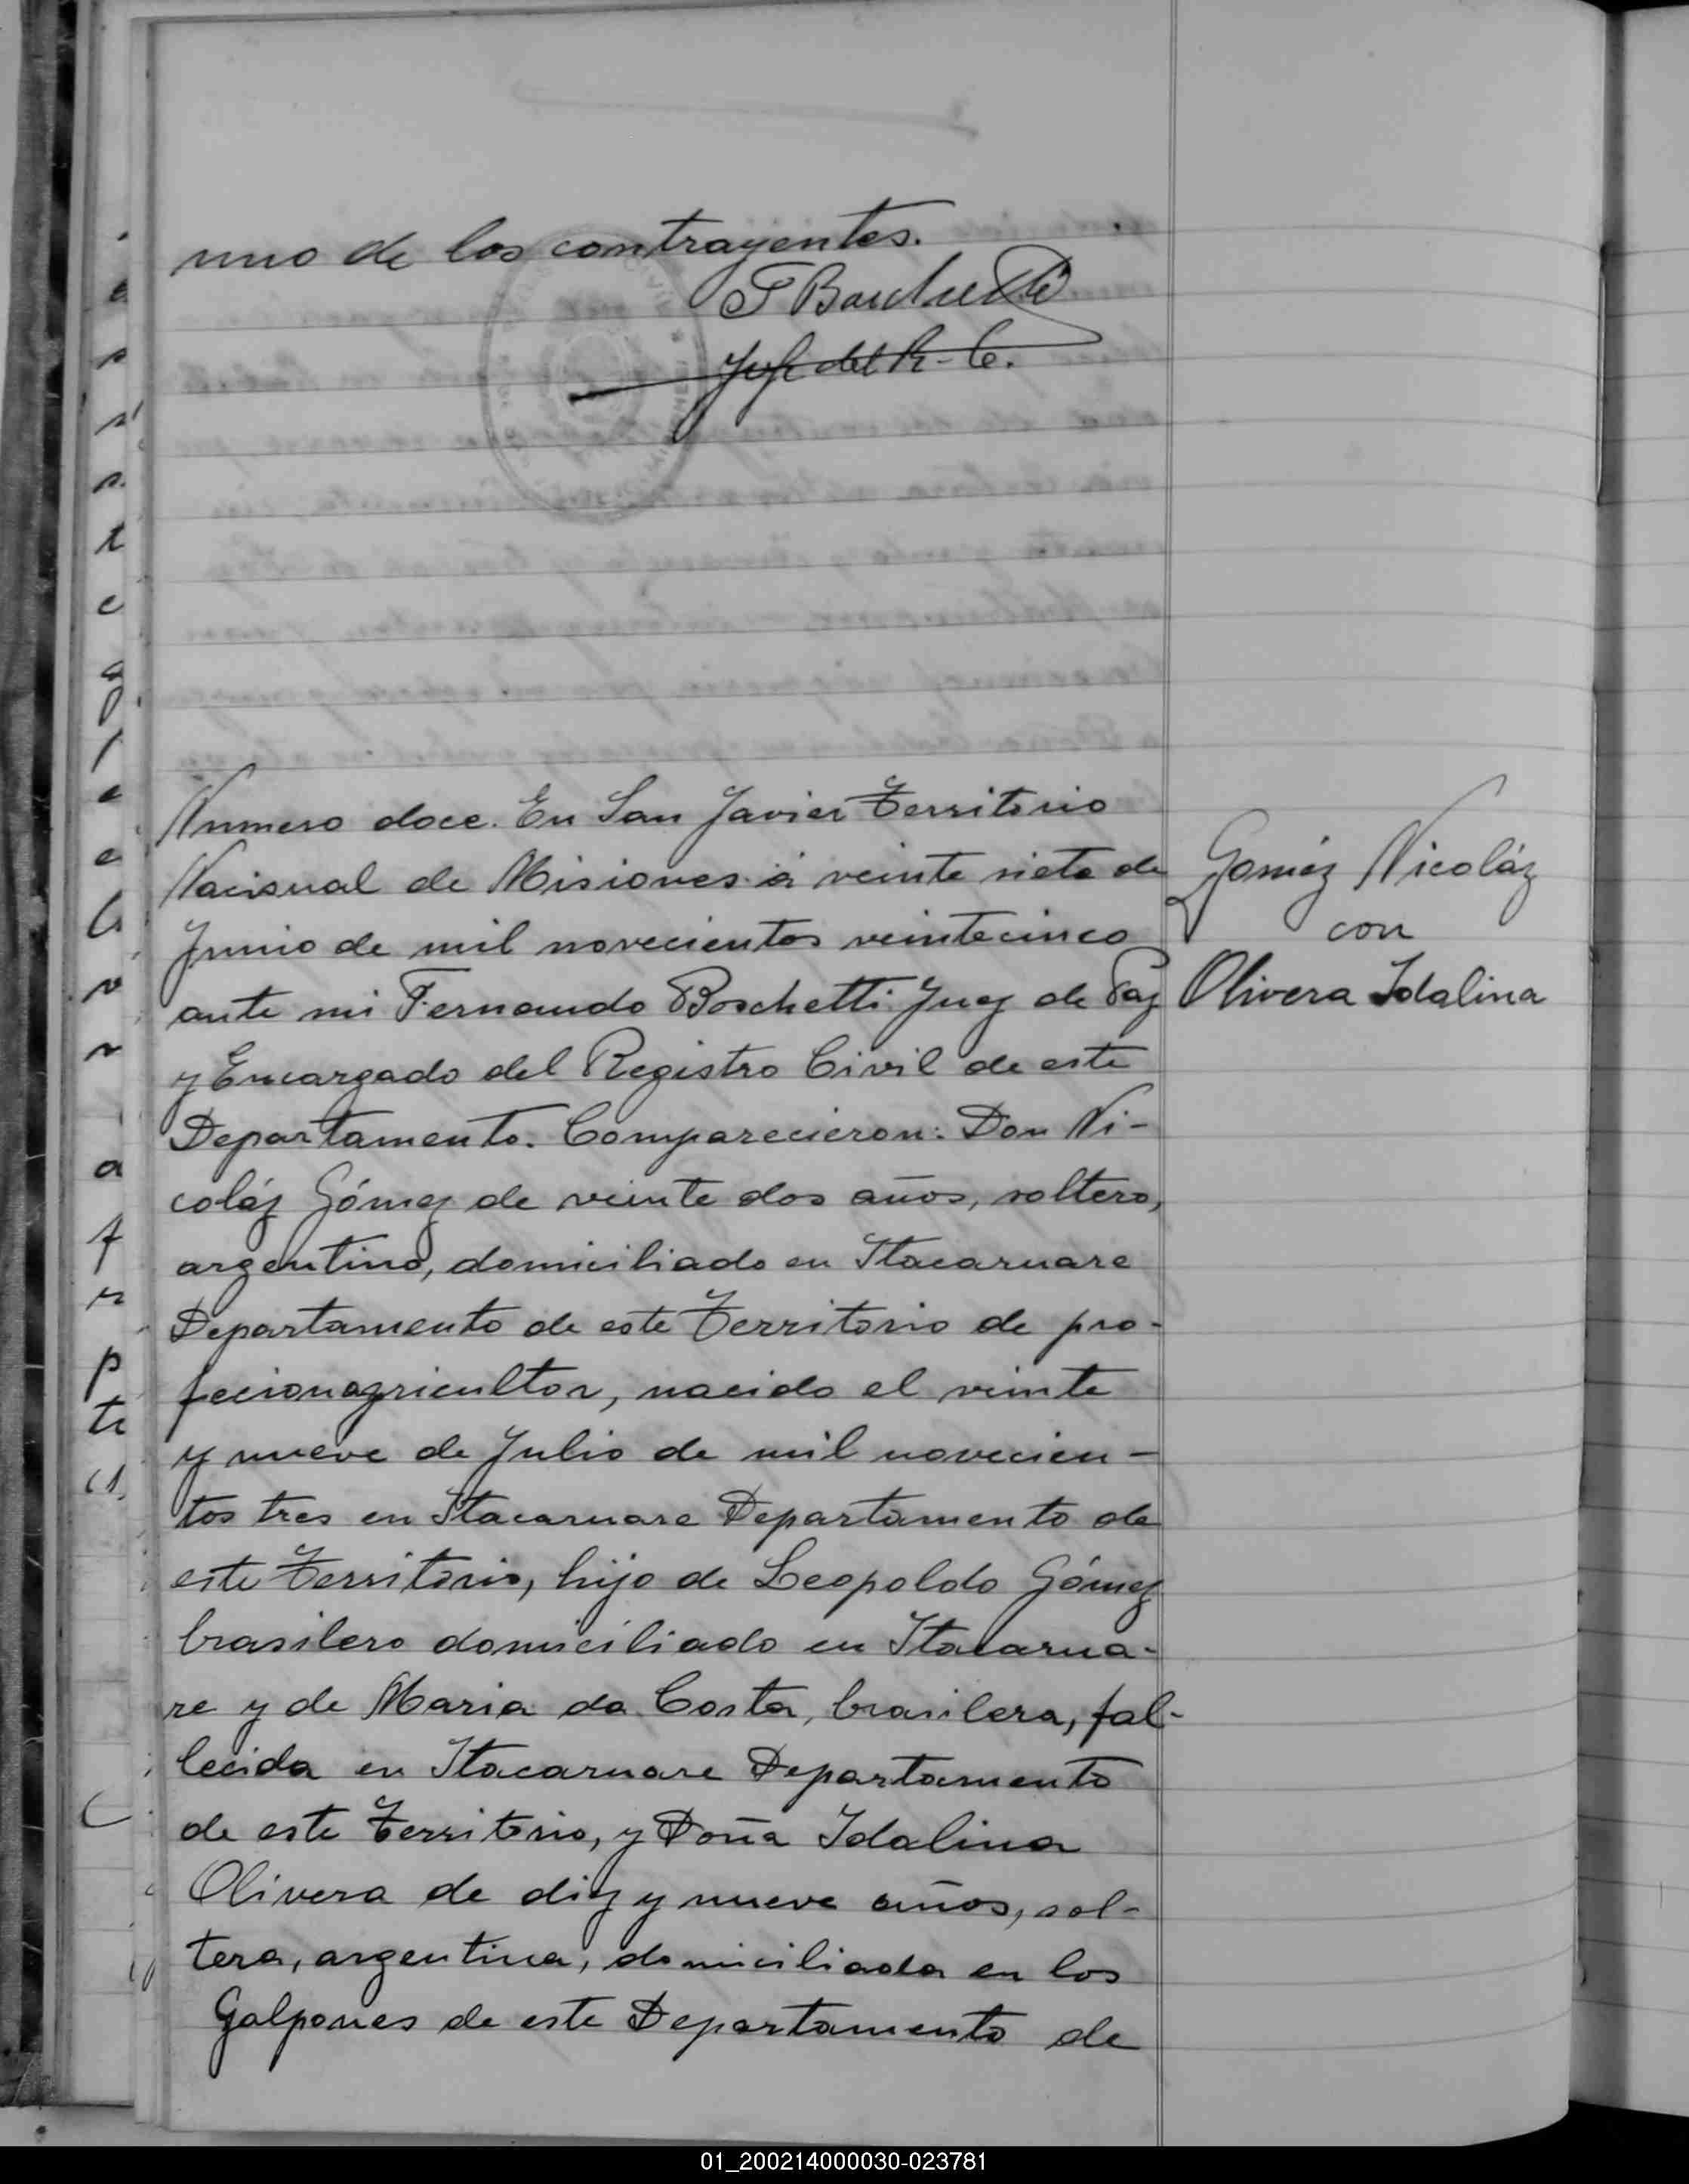 uno de los contrayentes.
F Boschetti
Jefe del R. C.
Numero doce. En San Javier Territorio
Nacional de Misiones á veinte siete de
Junio de mil novecientos veintecinco
ante mi Fernando Boschetti Juez de Paz
y Encargado del Registro Civil de este
Departamento. Comparecieron: Don Ni-
coláz Gómez de veinte dos años, soltero,
argentino, domiciliado en Itacaruare
Departamento de este Territorio de pro-
fecion agricultor, nacido el veinte
y nueve de Julio de mil novecien-
tos tres en Itacaruare Departamento de
este Territorio, hijo de Leopoldo Gómez
brasilero domiciliado en Itacarua-
re y de Maria da Costa, brasilera, fal-
lecida en Itacaruare Departamento
de este Territorio, y Doña Idalina
Olivera de diz y nueve años, sol-
tera, argentina, domiciliada en los
Galpones de este Departamento de
Goméz Nicoláz
con
Olivera Idalina
01_200214000030-023781